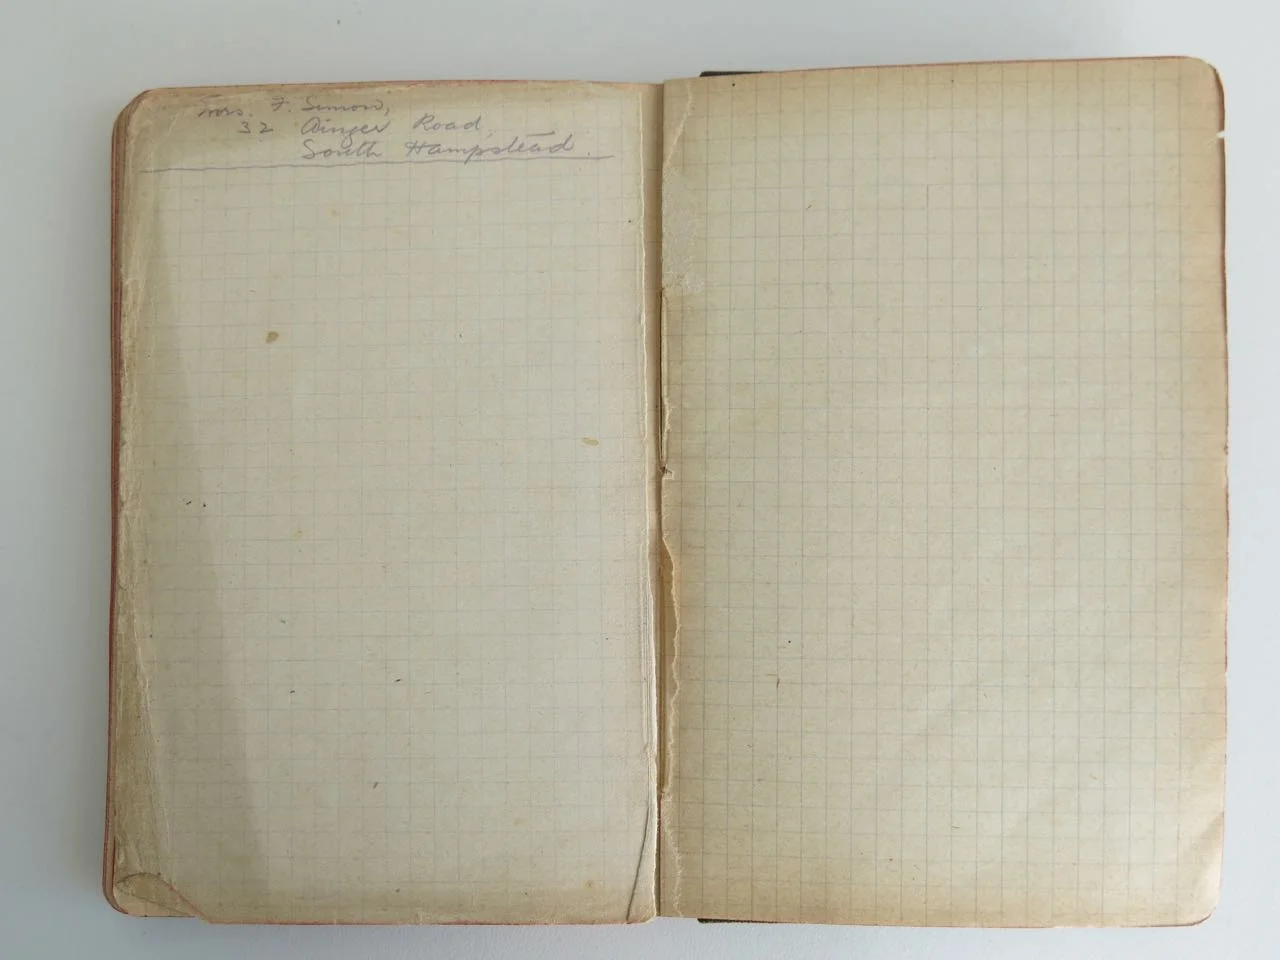 Mrs. F. Simon,
32 Ainger Road,
South Hampstead.